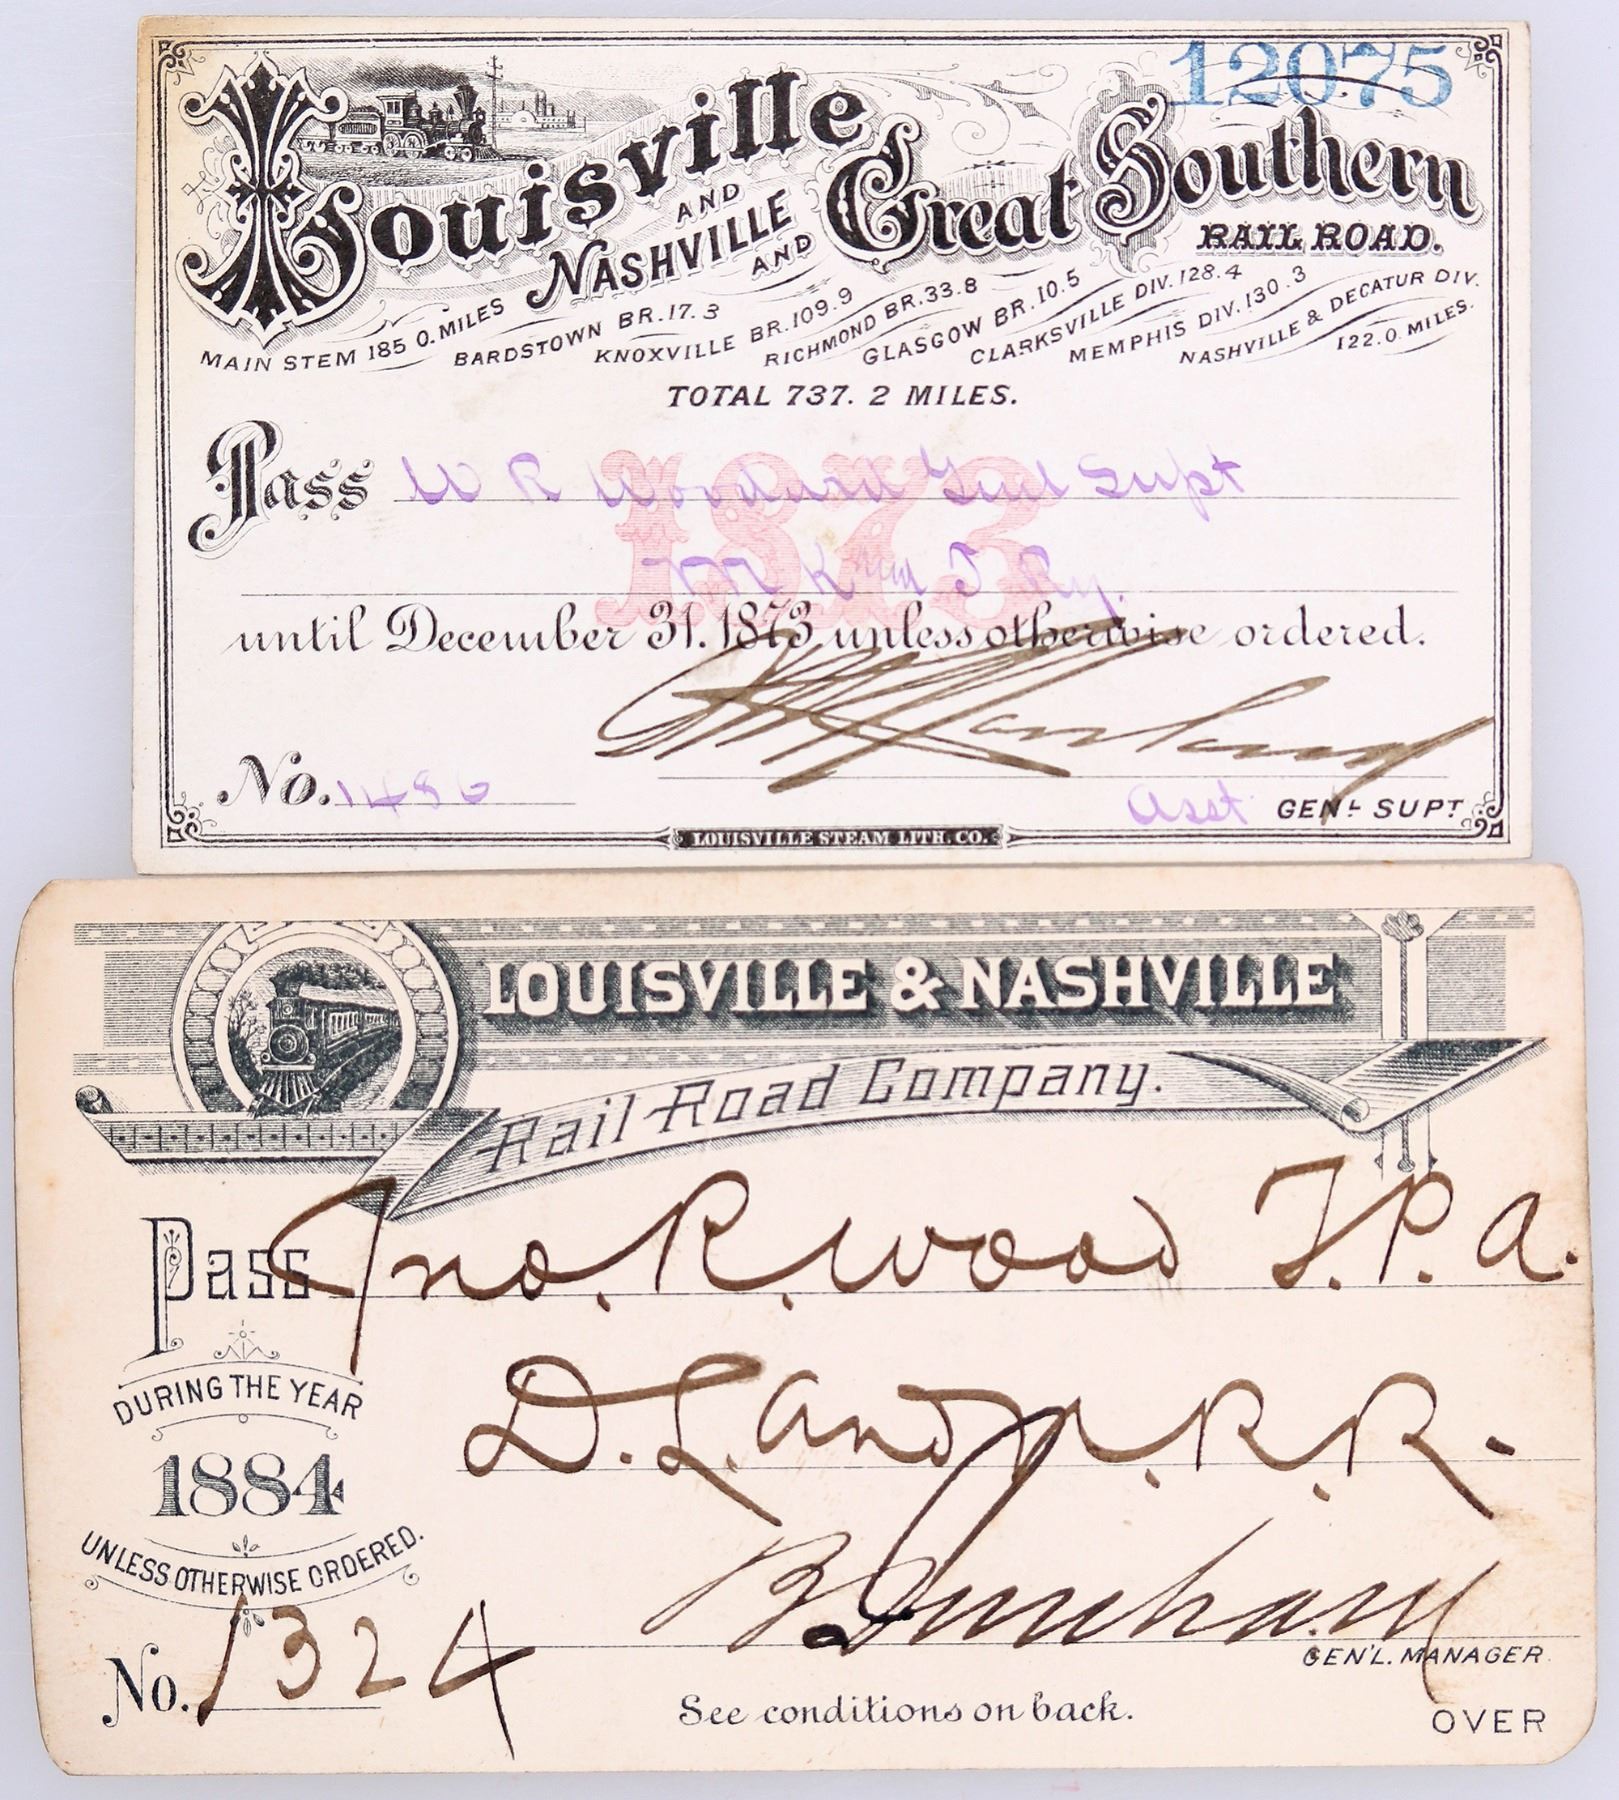 12075
Louisville
AND
NASHVILLE
AND
Great Southern
RAIL ROAD.
MAIN STEM 185 0. MILES
BARDSTOWN BR. 17. 3
KNOXVILLE BR. 109. 9
RICHMOND BR. 33. 8
GLASGOW BR. 10. 5
CLARKSVILLE DIV. 128. 4
MEMPHIS DIV. 130. 3
NASHVILLE & DECATUR DIV.
122. 0. MILES.
TOTAL 737. 2 MILES.
Pass W R Woodard Genl Supt
1873
M K and T Ry.
until December 31. 1873 unless otherwise ordered.
No. 1486
Asst GENL SUPT.
LOUISVILLE STEAM LITH. CO.
LOUISVILLE & NASHVILLE
Rail Road Company.
Pass Jno. R. Wood T. P. A.
D. L. and N. R. R.
DURING THE YEAR
1884
UNLESS OTHERWISE ORDERED.
GEN'L. MANAGER
No. 1324
See conditions on back.
OVER